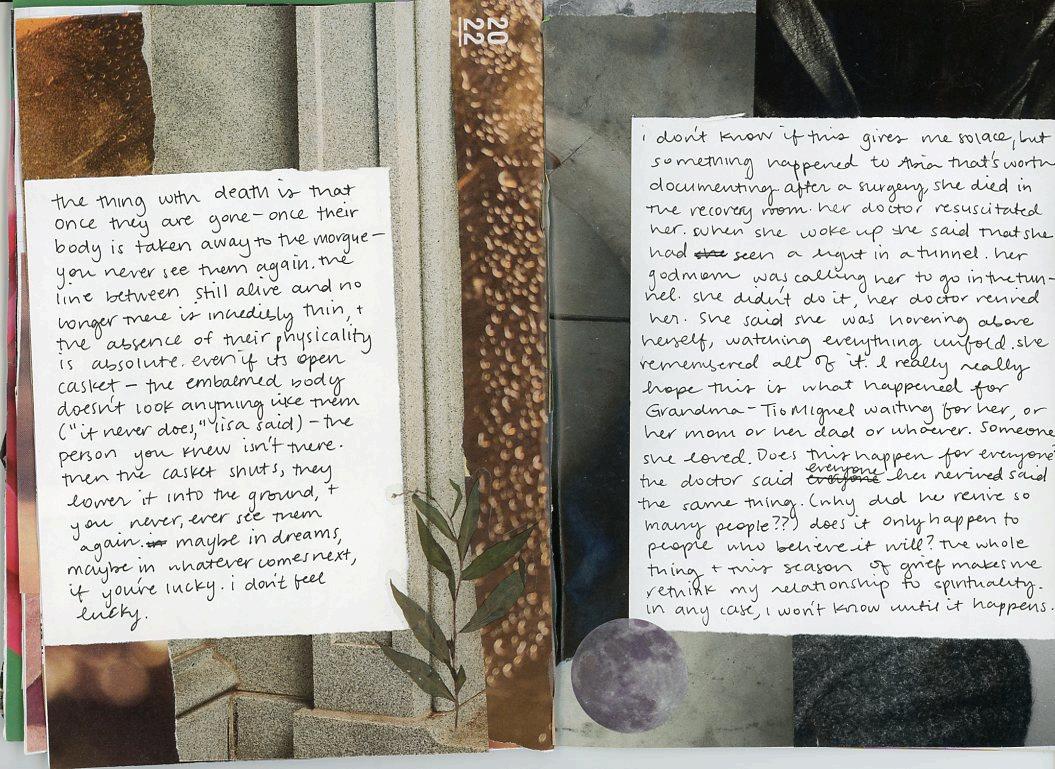 the thing with death is that
once they are gone – once their
body is taken away to the morgue –
you never see them again. the
line between still alive and no
longer there is incredibly thin, +
the absence of their physicality
is absolute. even if its open
casket – the embalmed body
doesn't look anything like them
("it never does," lisa said) – the
person you knew isn't there.
then the casket shuts, they
lower it into the ground, +
you never, ever see them
again. maybe in dreams,
maybe in whatever comes next,
if you're lucky. i don't feel
lucky.
20
22
i don't know if this gives me solace, but
something happened to Asia that's worth
documenting. after a surgery, she died in
the recovery room. her doctor resuscitated
her. when she woke up she said that she
had seen a light in a tunnel. her
godmom was calling her to go in the tun-
nel. she didn't do it, her doctor revived
her. she said she was hovering above
herself, watching everything unfold. she
remembered all of it. I really really
hope this is what happened for
Grandma – Tio Miguel waiting for her, or
her mom or her dad or whoever. Someone
she loved. Does this happen for everyone?
the doctor said everyone he revived said
the same thing. (why did he revive so
many people??) does it only happen to
people who believe it will? the whole
thing + this season of grief makes me
rethink my relationship to spirituality.
in any case, i won't know until it happens.